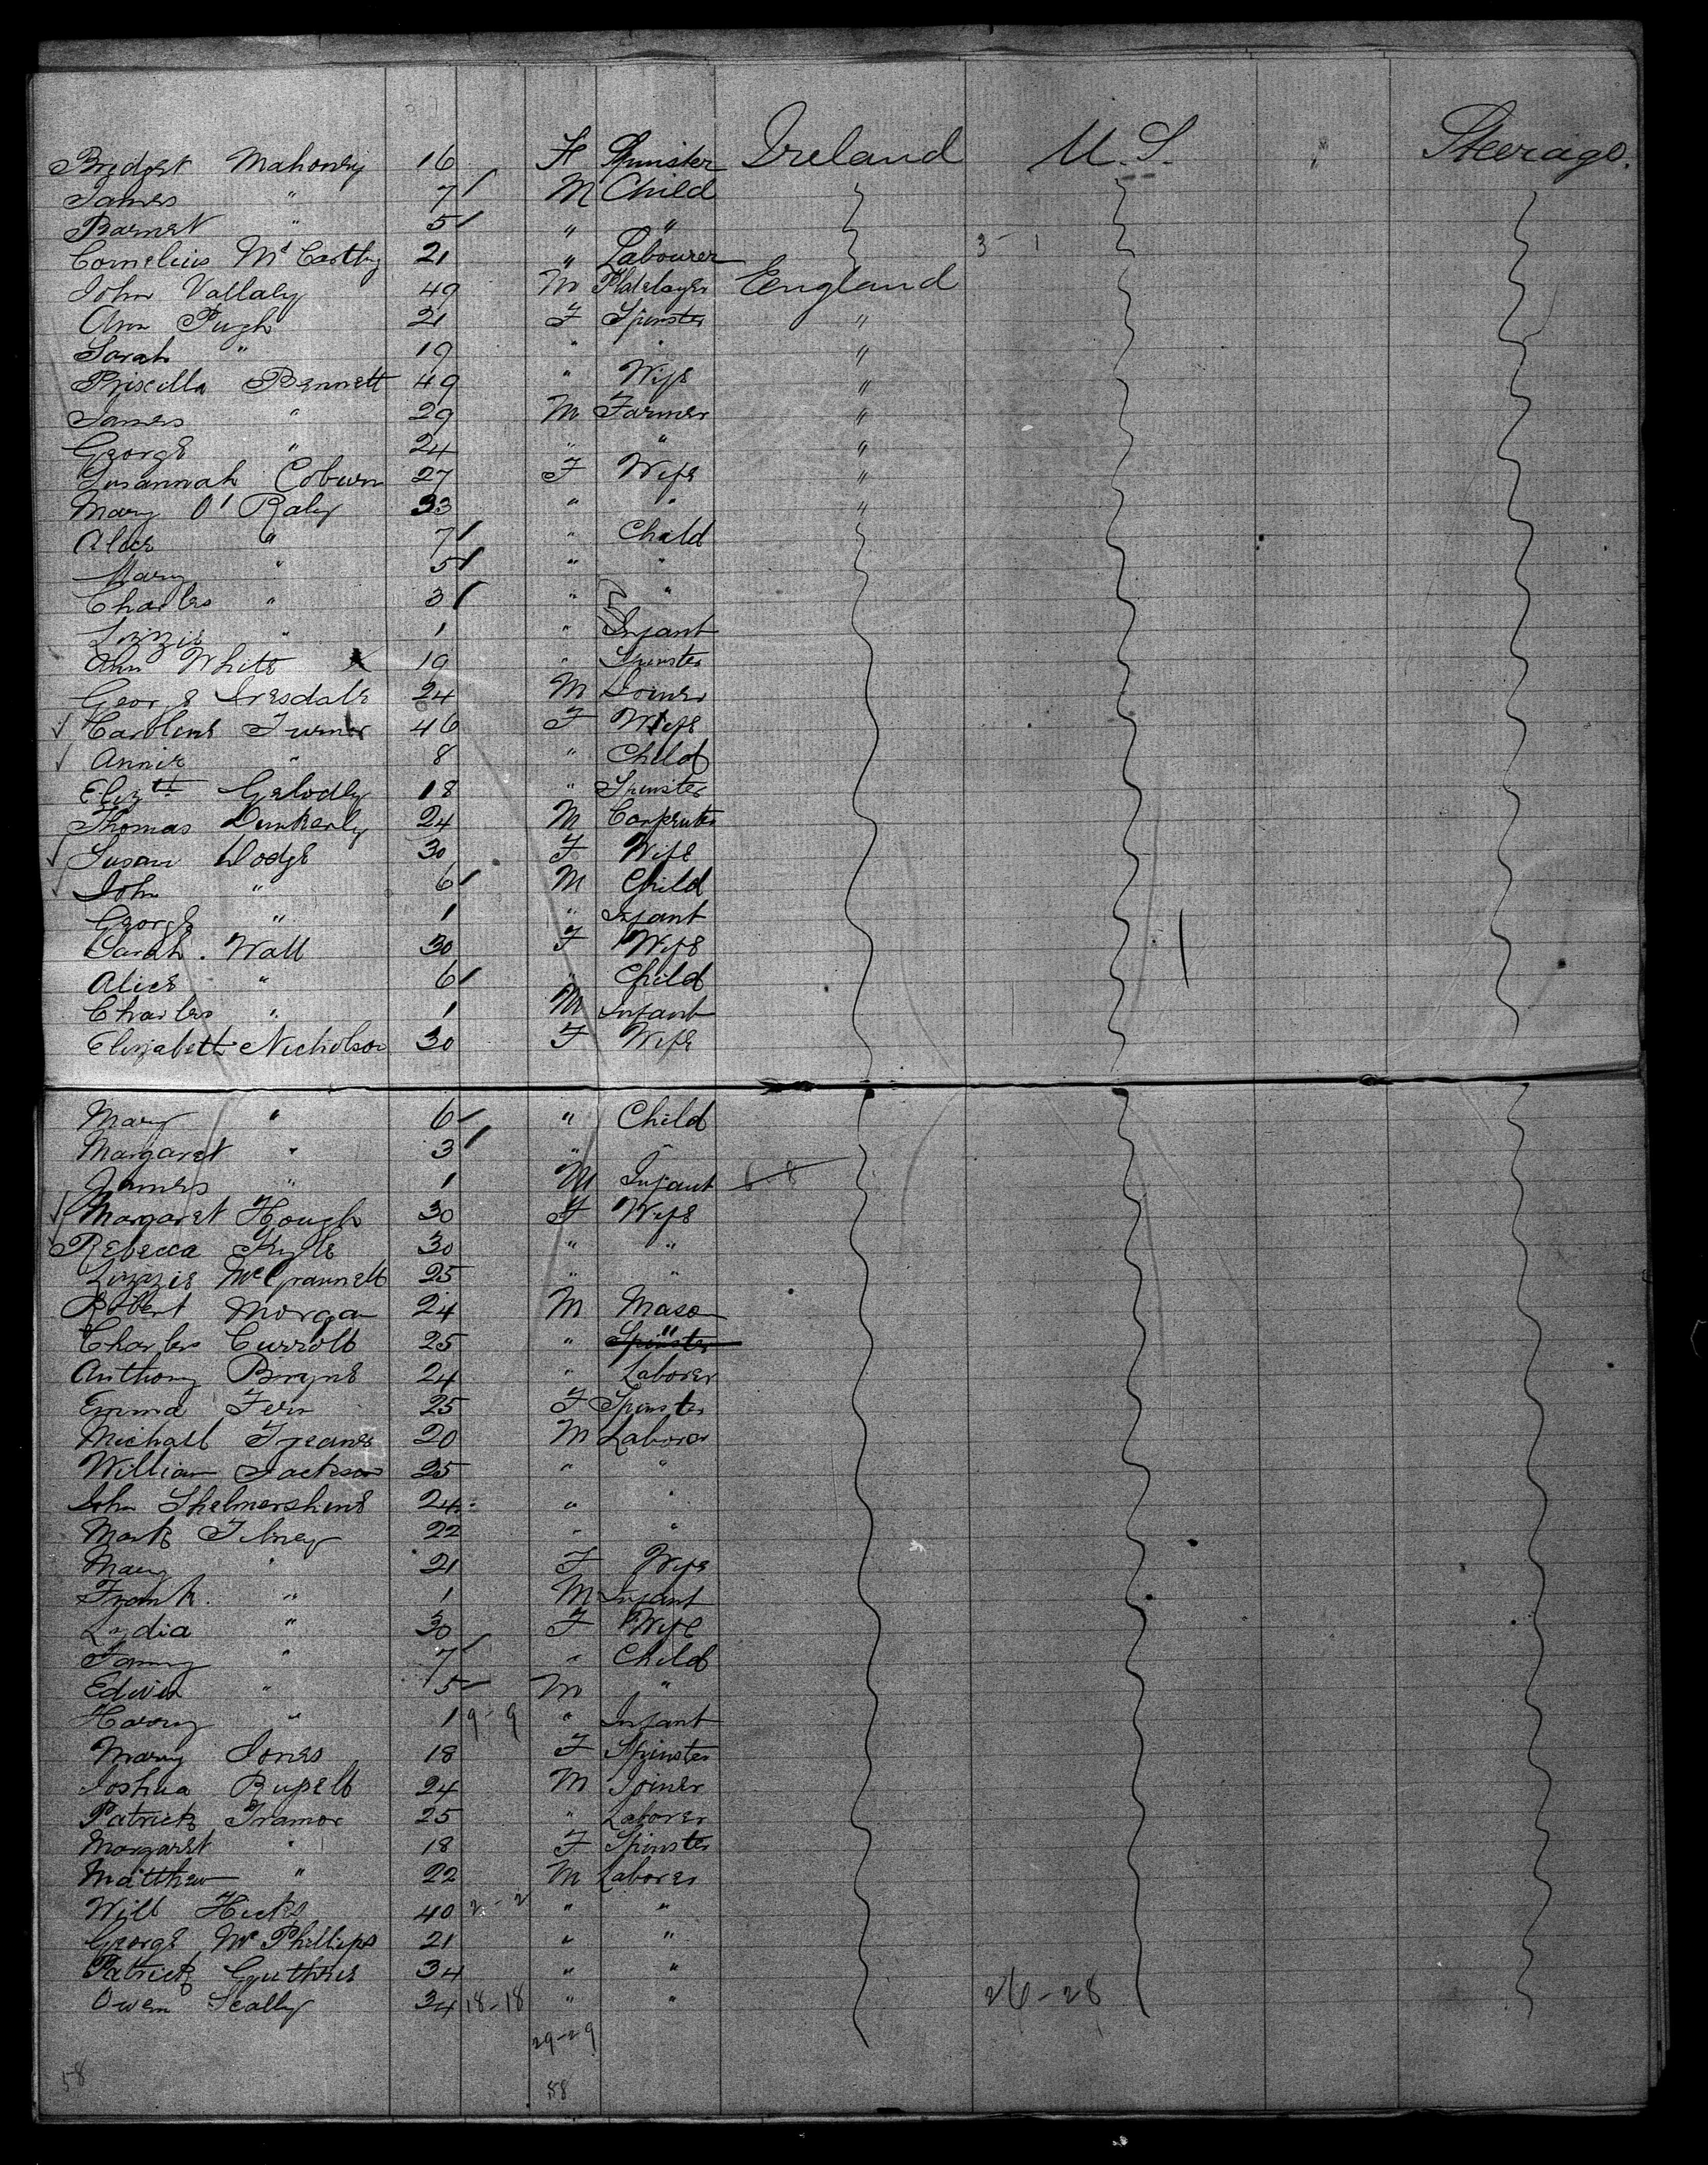 Bridget Mahoney 16 F Spinster Ireland U.S. " Steerage.
James " 7 M Child
Barnet " 5 " "
Cornelius McCarthy 21 " Labourer 3 - 1
John Vallaly 49 M Platelayer England
Ann Pugh 21 F Spinster "
Sarah " 19 " " "
Priscilla Bennett 49 " Wife "
James " 29 M Farmer "
George " 24 " " "
Susannah Coburn 27 F Wife "
Mary O' Raly 33 " " "
Alice " 7 " Child
Mary " 5 " "
Charles " 3 " "
Lizzie " 1 " Infant
Ann White 19 " Spinster
George Iresdale 24 M Joiner
Caroline Turner 46 F Wife
Annie " 8 " Child
Elizth 18 " Spinster
Thomas Dunkerly 24 M Carpenter
Susan Dodge 30 F Wife
John " 6 M Child
George " 1 " Infant
Sarah Wall 30 F Wife
Alice " 6 " Child
Charles " 1 M Infant
Elizabeth Nicholson 30 F Wife
Mary " 6 " Child
Margaret " 3 " "
James " 1 M Infant
Margaret Hough 30 F Wife
Rebecca Kyle 30 " "
Lizzie 25 " "
Robert Morgan 24 M Mason
Charles Curroll 25 " "
Anthony Bryne 24 " Laborer
Emma Fern 25 F Spinster
Michael 20 M Laborer
William Jackson 25 " "
John Shelmershine 24 " "
Mark Tilney 22 " "
Mary " 21 F Wife
Frank " 1 M Infant
Lydia " 30 F Wife
Fanny " 7 " Child
Edwin " 5 M "
Harry " 1 9-9 " Infant
Mary Jones 18 F Spinster
Joshua Rupell 24 M Joiner
Patrick Tramor 25 " Laborer
Margaret " 18 F Spinster
Matthew " 22 M Laborer
Will Hicks 40 2-2 " "
George McPhillips 21 " "
Patrick Guthrie 34 " "
Owen Scally 34 18-18 " " 26-28
29-29
58 58